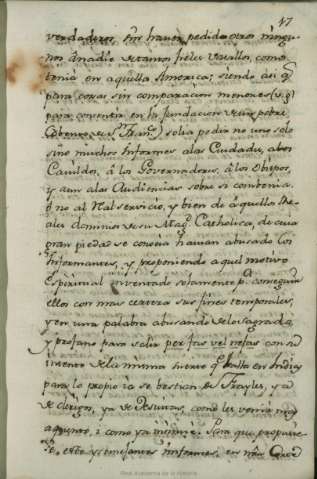 47
verdaderos, sin haver pedido otros ningu-
nos á nadie de tantos fieles Vasallos, como
tenia en aquella America; siendo asi q.
para cosas sin comparacion menores (v. g.
para consentir en la fundacion de un pobre
Convento de S. Fran.co) solia pedir no uno solo
sino muchos Informes a las Ciudades, a los
Cavildos, á los Governadores, á los Obispos,
y aun a las Audiencias sobre si convenia
ó no al Real servicio, y bien de aquellos Re-
ales dominios de su Mag.d Catholica, de cuia
gran piedad se conoce havian abusado los
Informantes, y proponiendo aquel motivo
Espiritual inventado solamente p.a conseguir
ellos con mas certeza sus fines temporales,
y en una palabra abusando de lo sagrado,
y profano para salir per fas vel nefas con su
intento de la misma suerte q. en Indias
para lo propio ia se bestian de Frayles, ya
de clerigos, ya de Jesuitas, como les venia mas
aqüento, i como ya informé. Para que
este y semejantes informes, en
Real Academia de la Historia